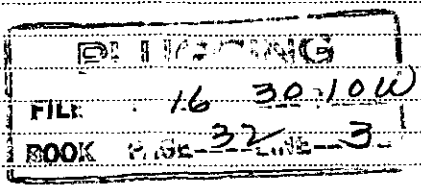 PLUGGING
FILE 16 30-10W
BOOK PAGE 32 LINE 3